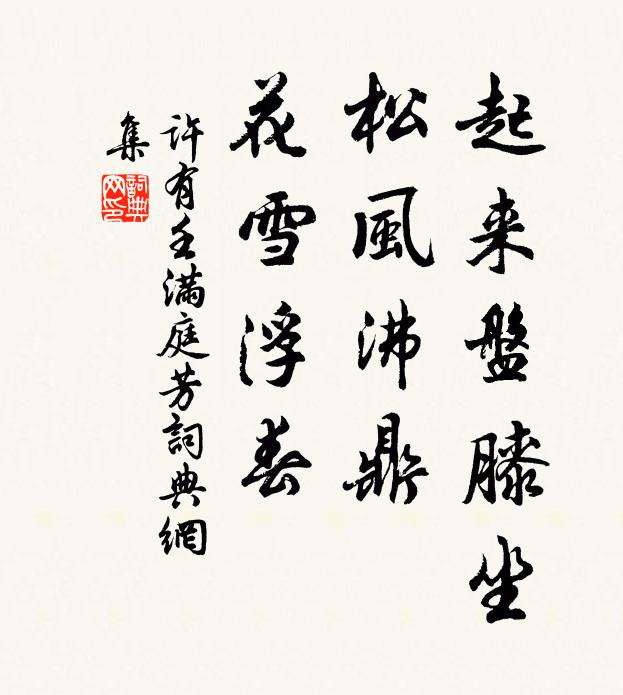 起来盤膝坐
松風沸鼎
花雪浮春
許有壬滿庭芳詞典網
集
詞典
网印